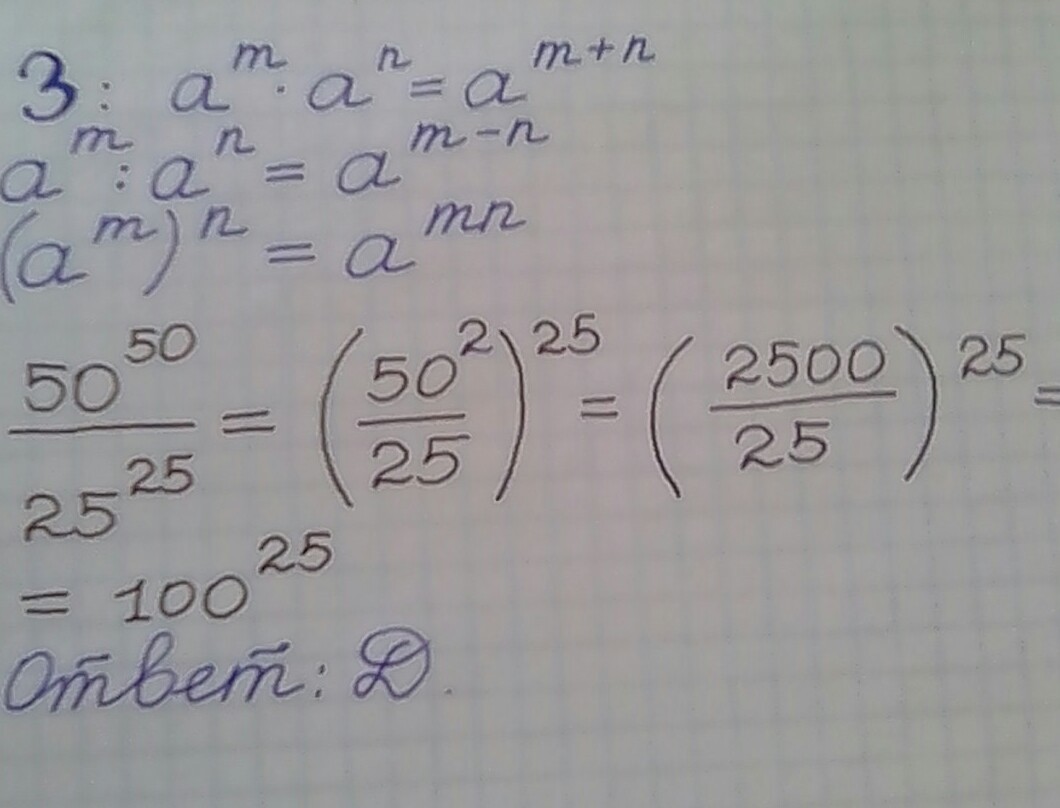 3: a^m · a^n = a^{m+n}
a^m : a^n = a^{m-n}
(a^m)^n = a^{mn}
50^{50}/25^{25} = (50^2/25)^{25} = (2500/25)^{25} =
= 100^{25}
Ответ: Д.